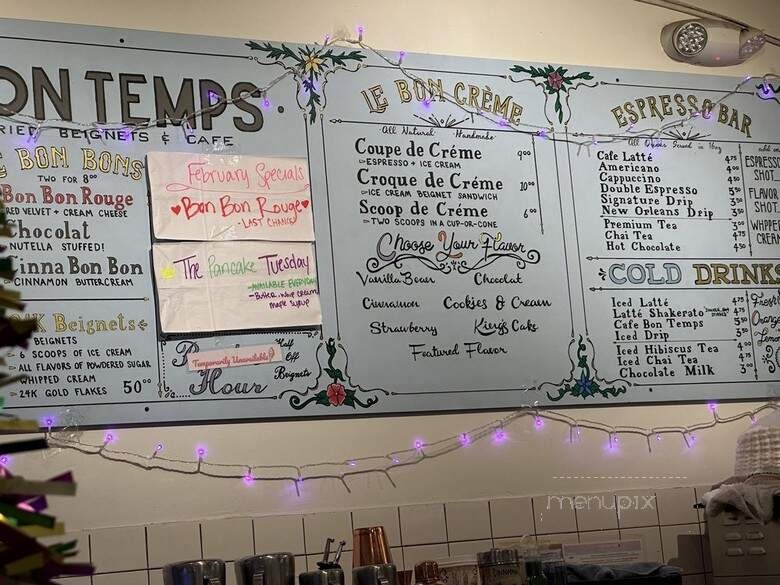 ON TEMPS
RIED BEIGNETS & CAFE
E BON BONS
TWO FOR 8⁰⁰
Bon Bon Rouge
RED VELVET + CREAM CHEESE
Chocolat
NUTELLA STUFFED!
Cinna Bon Bon
CINNAMON BUTTERCREAM
K Beignets
BEIGNETS
6 SCOOPS OF ICE CREAM
ALL FLAVORS OF POWDERED SUGAR
WHIPPED CREAM
24K GOLD FLAKES 50⁰⁰
February Specials
♥Bon Bon Rouge♥
-LAST CHANCE!
The Pancake Tuesday
-AVAILABLE EVERYDAY
maple syrup
Temporarily Unavailable
Hour
Half
Off
Beignets
LE BON CRÈME
All Natural Handmade
Coupe de Créme 9⁰⁰
ESPRESSO + ICE CREAM
Croque de Créme 10⁰⁰
ICE CREAM BEIGNET SANDWICH
Scoop de Créme 6⁰⁰
TWO SCOOPS IN A CUP-OR-CONE
Choose Your Flavor
Vanilla Bean Chocolat
Cinnamon Cookies & Cream
Strawberry King Cake
Featured Flavor
ESPRESSO BAR
All Drinks Served in 16oz
Cafe Latté 4⁷⁵
Americano 4⁰⁰
Cappuccino 4⁵⁰
Double Espresso 3⁵⁰
Signature Drip 3⁰⁰
New Orleans Drip 3⁵⁰
Premium Tea 3⁰⁰
Chai Tea 4⁷⁵
Hot Chocolate 4⁵⁰
ESPRESSO
SHOT
FLAVOR
SHOT
WHIPPED
CREAM
COLD DRINK
Iced Latté 4⁷⁵
Latté Shakerato 4⁷⁵
Cafe Bon Temps 5⁵⁰
Iced Drip 3⁵⁰
Iced Hibiscus Tea 4⁰⁰
Iced Chai Tea 4⁷⁵
Chocolate Milk 3⁰⁰
menupix